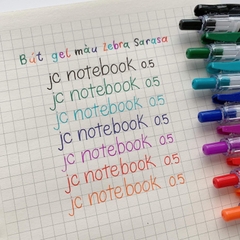 Bút gel màu Zebra Sarasa
jc notebook 0.5
jc notebook 0.5
jc notebook 0.5
jc notebook 0.5
jc notebook 0.5
jc notebook 0.5
jc notebook 0.5